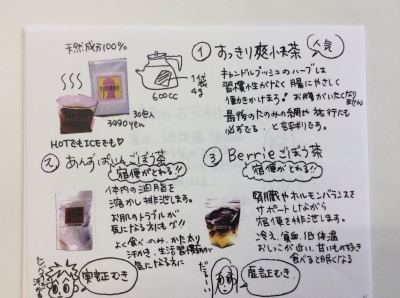 天然成分100%
1袋
4g
600cc
30包入
3990yen
HOTでもICEでも♡
① すっきり爽快茶
人気
キャンドルブッシュのハーブは
習慣性がなく腸にやさしく
働きかけます♪ お腹がいたくなりません
最後のたのみの綱や旅行でも
必ずでる と評判です。
② あんずぱいんごぼう茶
宿便がとれる!!
体内の油脂を
溶かし排泄します。
お肌のトラブルが
気になる方にもグ!!
よく食べのみ、かた太り
汗かき、生活習慣病が
気になる方に
実証むき
③ Berrieごぼう茶
宿便がとれる!!
腎臓やホルモンバランスを
サポートしながら
宿便を排泄します。
冷え、貧血、低体温
おしっこが近い、甘いもの好き
食べると眠くなる
虚証むき